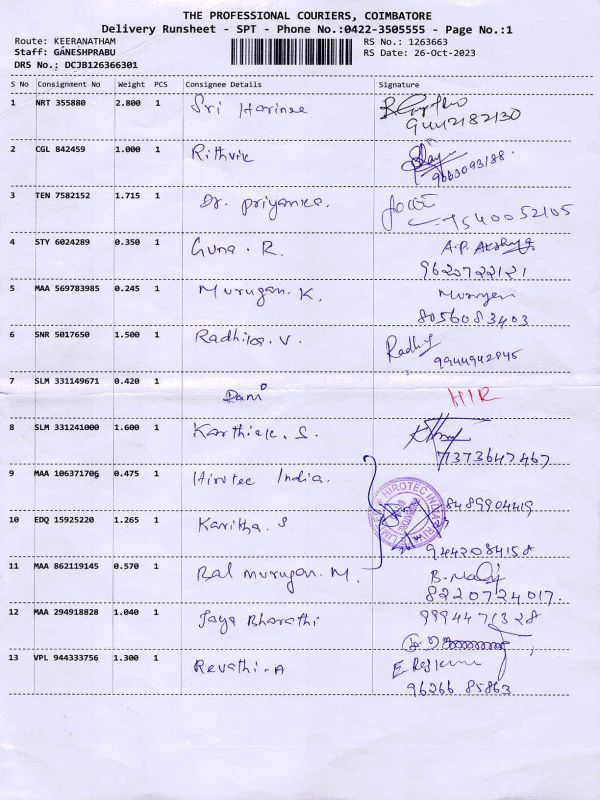 THE PROFESSIONAL COURIERS, COIMBATORE
Delivery Runsheet - SPT - Phone No.:0422-3505555 - Page No.:1
Route: KEERANATHAM RS No.: 1263663
Staff: GANESHPRABU RS Date: 26-Oct-2023
DRS No.: DCJB126366301
S No Consignment No Weight PCS Consignee Details Signature
1 NRT 355880 2.800 1 Sri Harinee
9442182130
2 CGL 842459 1.000 1 Rithvik
9663093188
3 TEN 7582152 1.715 1 Dr. Priyanka.
7540052105
4 STY 6024289 0.350 1 Guna . R. A.P. Akshaya
9620722121
5 MAA 569783985 0.245 1 Murugan. K. Murugan
8056083403
6 SNR 5017650 1.500 1 Radhika. V.
9944942845
7 SLM 331149671 0.420 1 Rani
8 SLM 331241000 1.600 1 Karthick. S.
7373647467
9 MAA 106371706 0.475 1 Hirotec India.
8489904419
HIROTEC INDIA PRIVATE LIMITED
10 EDQ 15925220 1.265 1 Kavitha. S
9442084158
11 MAA 862119145 0.570 1 Bal murugan. M.
8220724017.
12 MAA 294918828 1.040 1 Jaya Bharathi 9994471328
13 VPL 944333756 1.300 1 Revathi. A E. Rajkumar
96266 85863